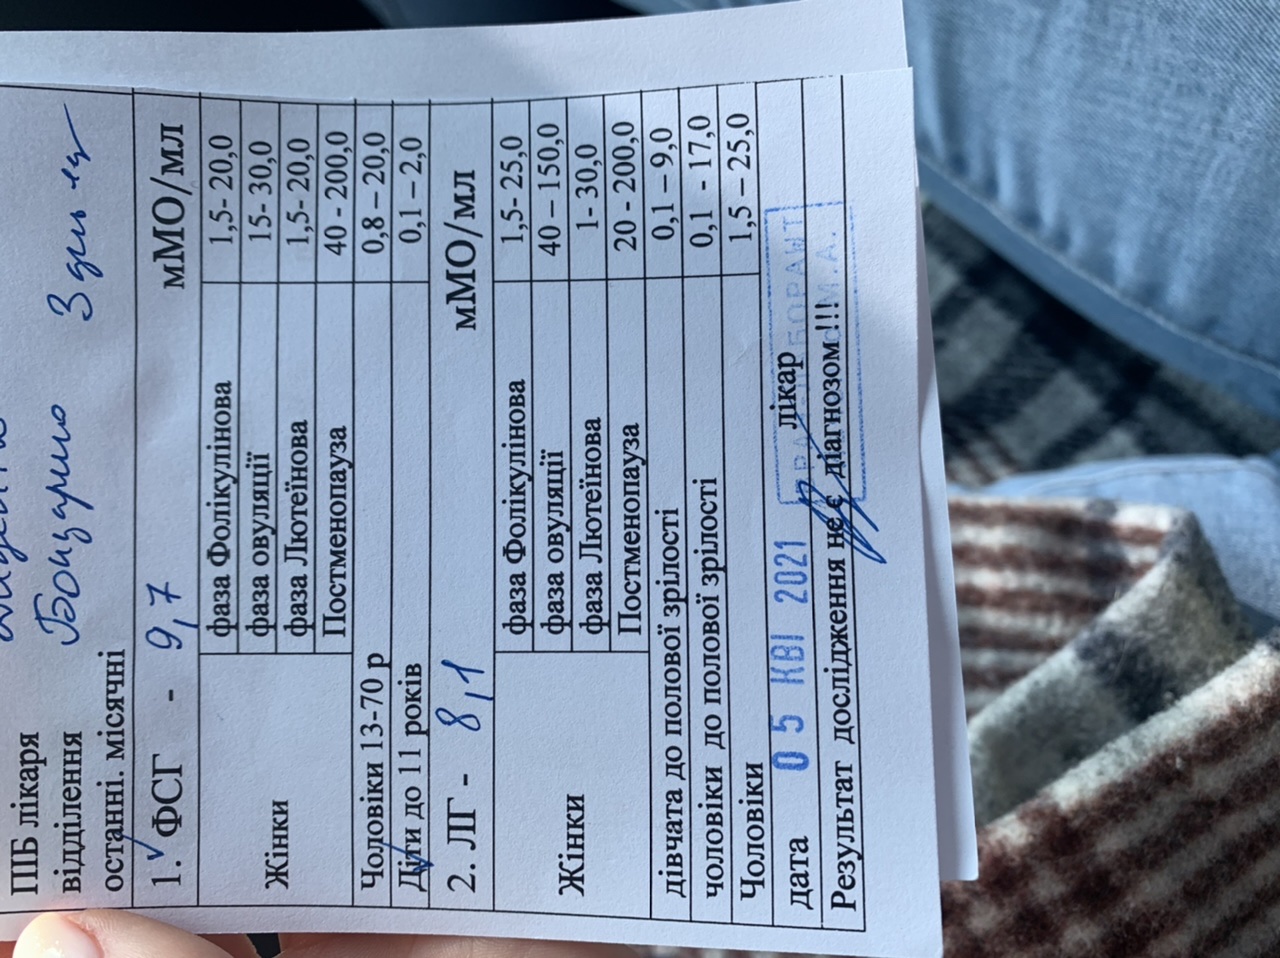 ПІБ лікаря
відділення Бондарино 3 день
останні. місячні
1. ФСГ - 9,7 мМО/мл
Жінки
фаза Фолікулінова 1,5- 20,0
фаза овуляції 15- 30,0
фаза Лютеїнова 1,5- 20,0
Постменопауза 40 - 200,0
Чоловіки 13-70 р 0,8 – 20,0
Діти до 11 років 0,1 – 2,0
2. ЛГ - 8,1 мМО/мл
Жінки
фаза Фолікулінова 1,5- 25,0
фаза овуляції 40 – 150,0
фаза Лютеїнова 1- 30,0
Постменопауза 20 - 200,0
дівчата до полової зрілості 0,1 – 9,0
чоловіки до полової зрілості 0,1 - 17,0
Чоловіки 1,5 – 25,0
дата 05 КВІ 2021 лікар
Результат дослідження не є діагнозом!!!